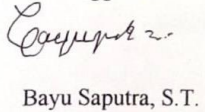 Bayu Saputra, S.T.